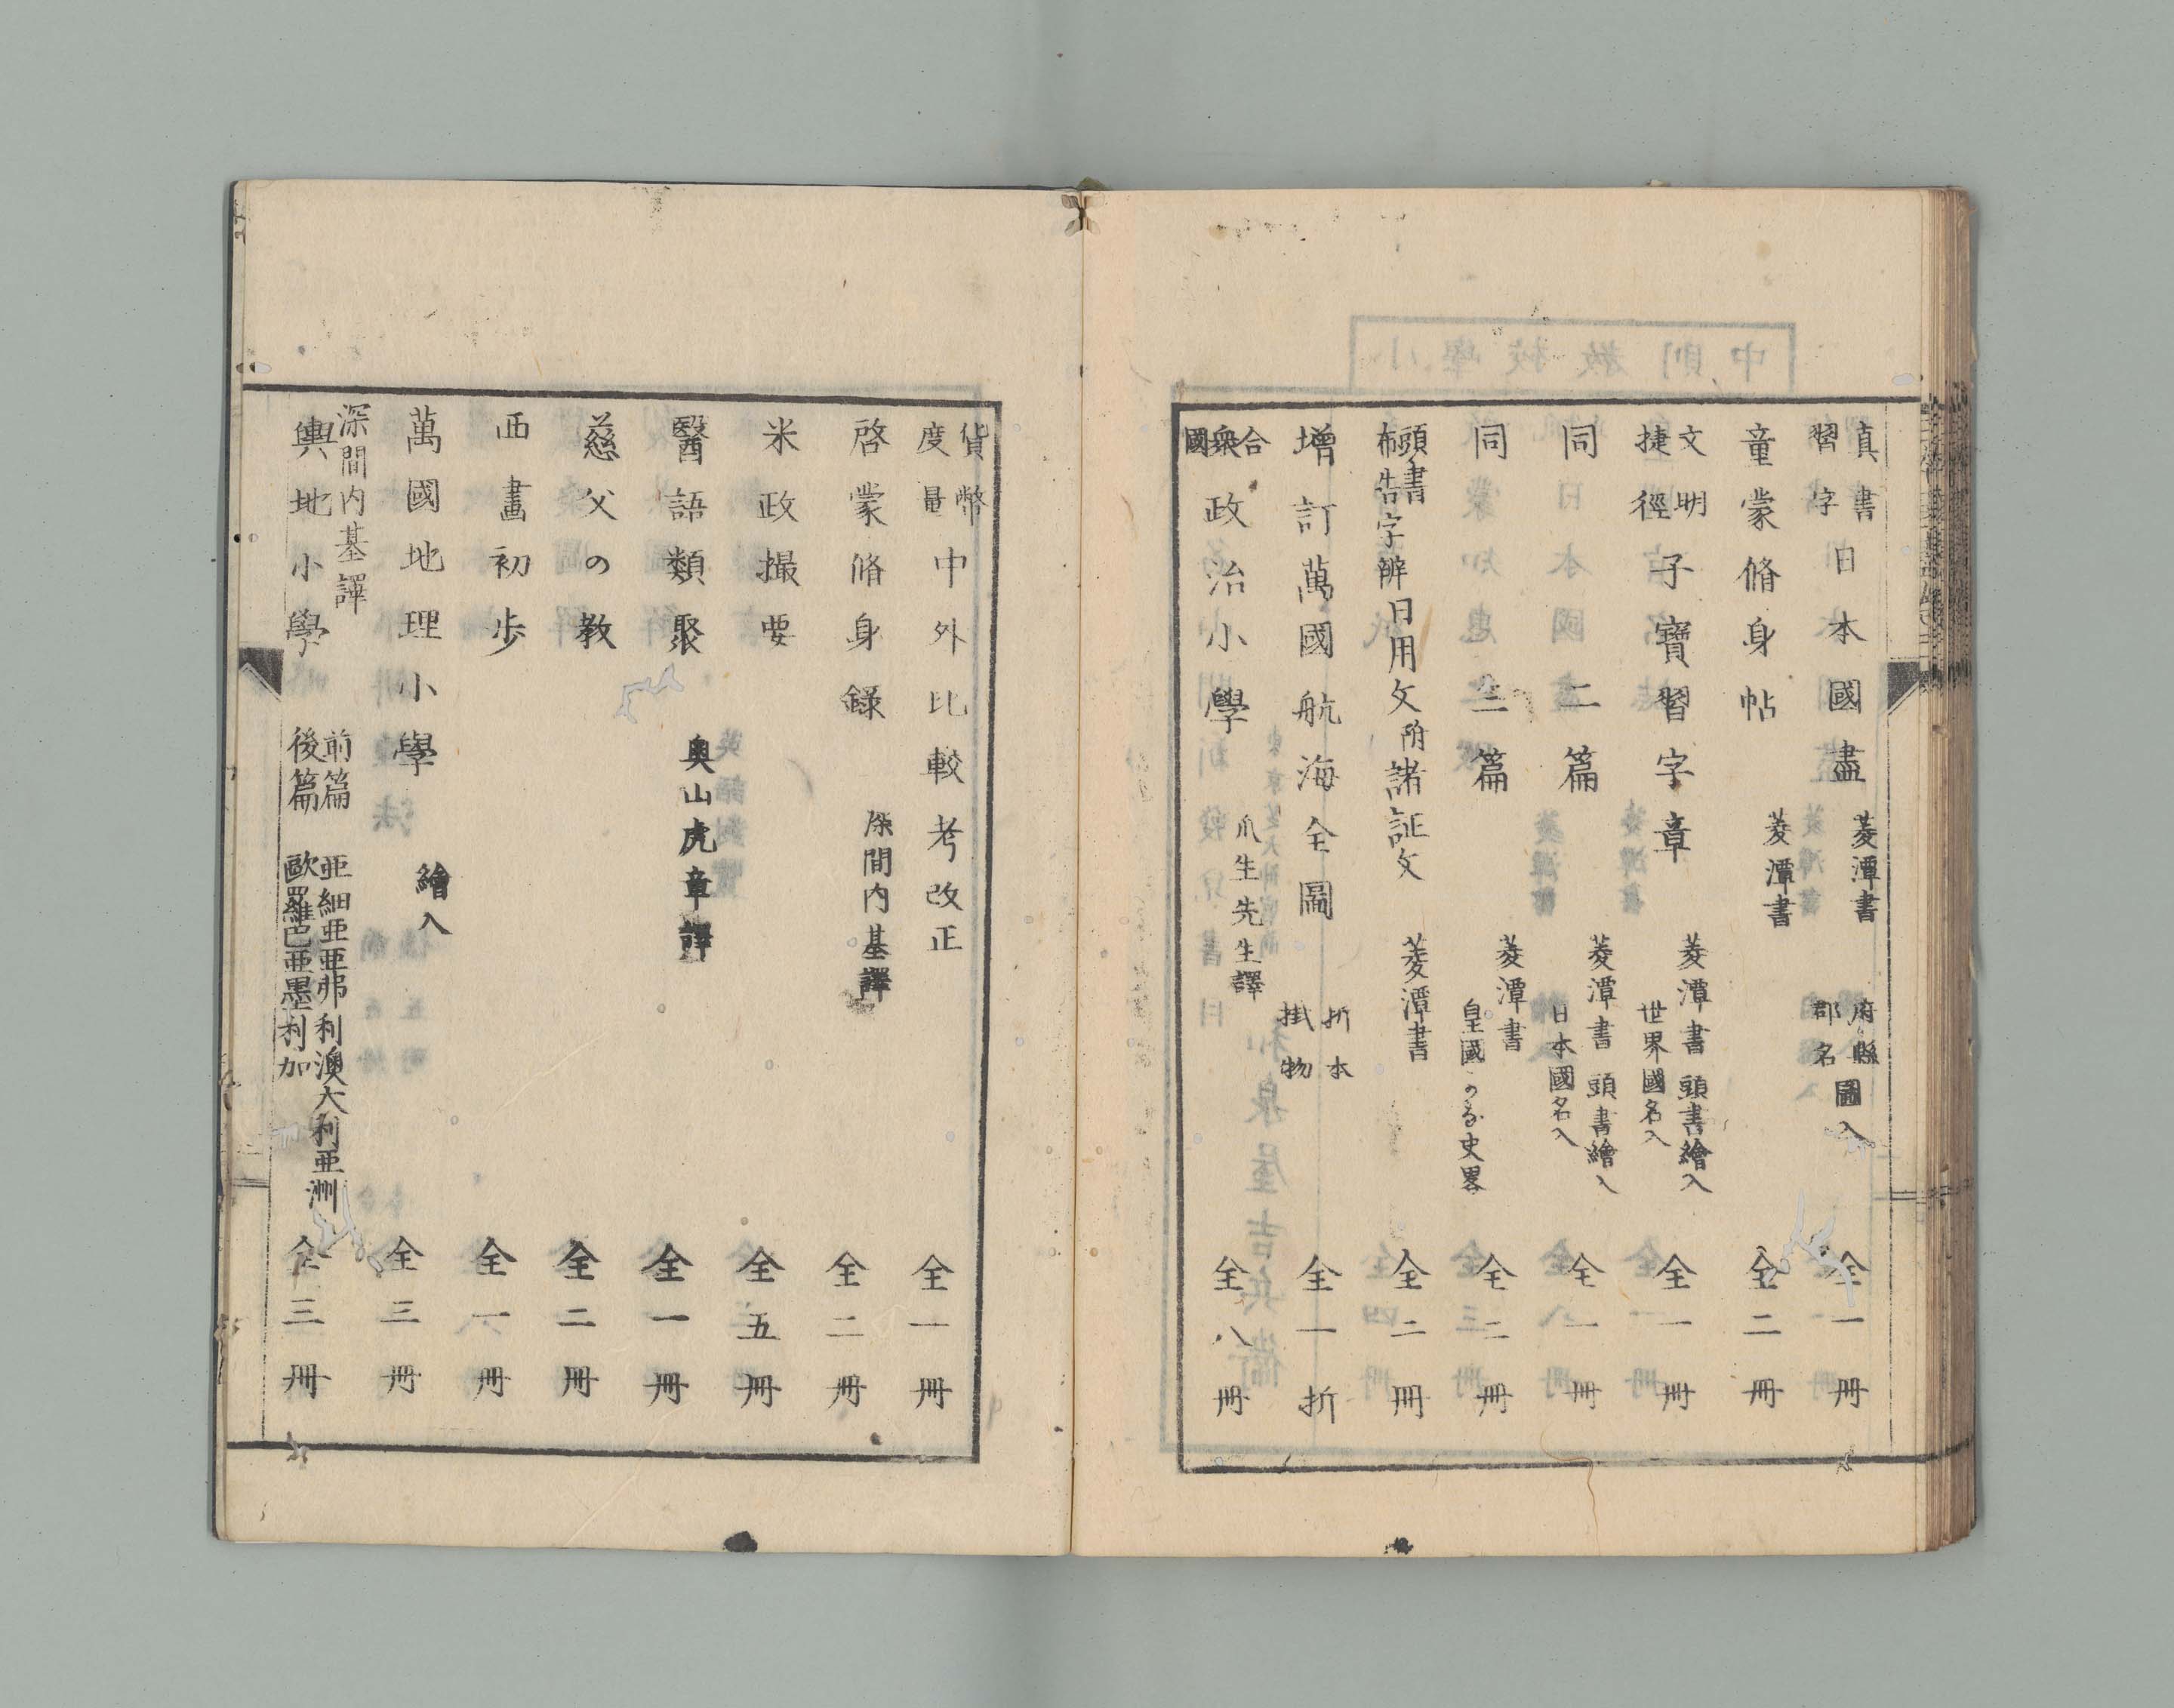 真書習字 日本國盡 菱潭書 府縣郡名 圖入 全一冊
童蒙脩身帖 菱潭書 全二冊
文明捷徑 子寶習字章 菱潭書 頭書繪入 世界國名入 全一冊
同 二篇 菱潭書 頭書繪入 日本國名入 全一冊
同 三篇 菱潭書 皇國づる史畧 全二冊
頭書布告字辨 日用文 附諸証文 菱潭書 全二冊
增訂萬國航海全圖 折本 掛物 全一折
合衆國 政治小學 爪生先生譯 全八冊
貨幣度量 中外比較考 改正 全一冊
啓蒙脩身錄 深間内基譯 全二冊
米政撮要 全五冊
醫語類聚 奥山虎章譯 全一冊
慈父の教 全二冊
西畫初步 全一冊
萬國地理小學 繪入 全三冊
深間内基譯
輿地小學 前篇 亜細亜亜弗利澳大利亜洲 後篇 歐羅巴亜墨利加 全三冊